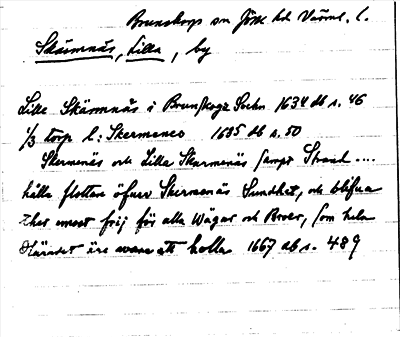 Brunskogs sn Jösse hd Värml. l.
Skärmnäs, Lilla, by
Lille Skärmnäs i Brunskogz Sochn 1634 db s. 46
1/3 torp l: Skermenes 1685 db s. 50
Skermenäs och Lille Skermenäs sampt Strand ....
hålla flottan öfuer Skermenäs Sundhet, och blifua
ther emot frij för alla Wägar och Broer, som hela
Häradet äre ware att holla 1667 db s. 489